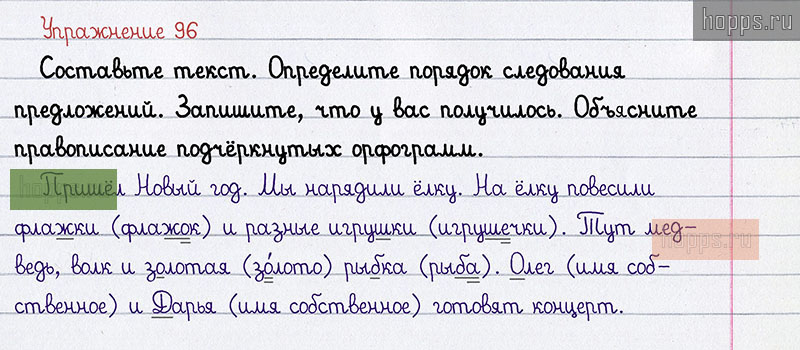 hopps.ru
Упражнение 96
Составьте текст. Определите порядок следования
предложений. Запишите, что у вас получилось. Объясните
правописание подчёркнутых орфограмм.
Пришёл Новый год. Мы нарядили ёлку. На ёлку повесили
флажки (флажок) и разные игрушки (игрушечки). Тут мед-
hopps.ru
ведь, волк и золотая (зо́лото) рыбка (рыба). Олег (имя соб-
ственное) и Дарья (имя собственное) готовят концерт.